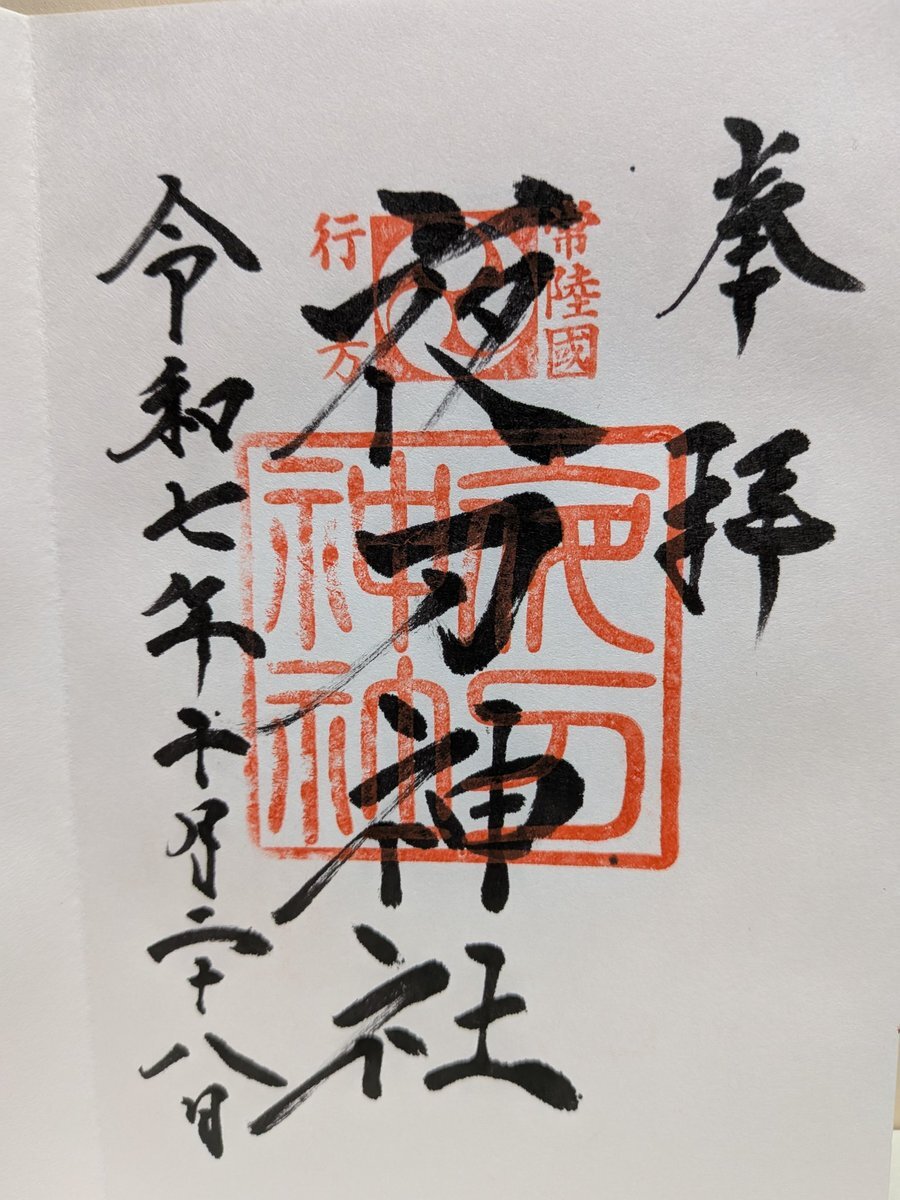 奉拝
常陸國
行方
夜刀神社
令和七年十月二十八日